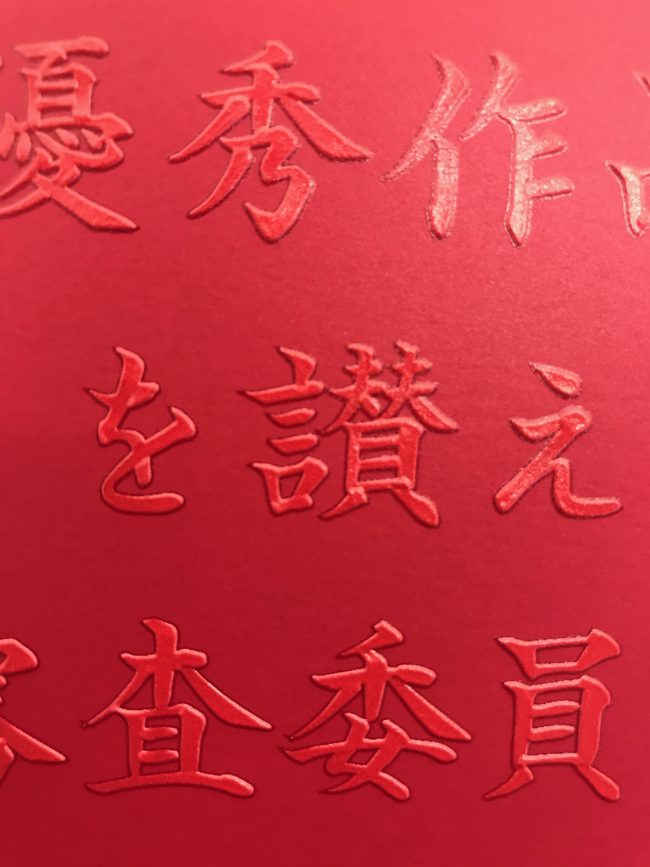 優秀作品
を讃え
審査委員